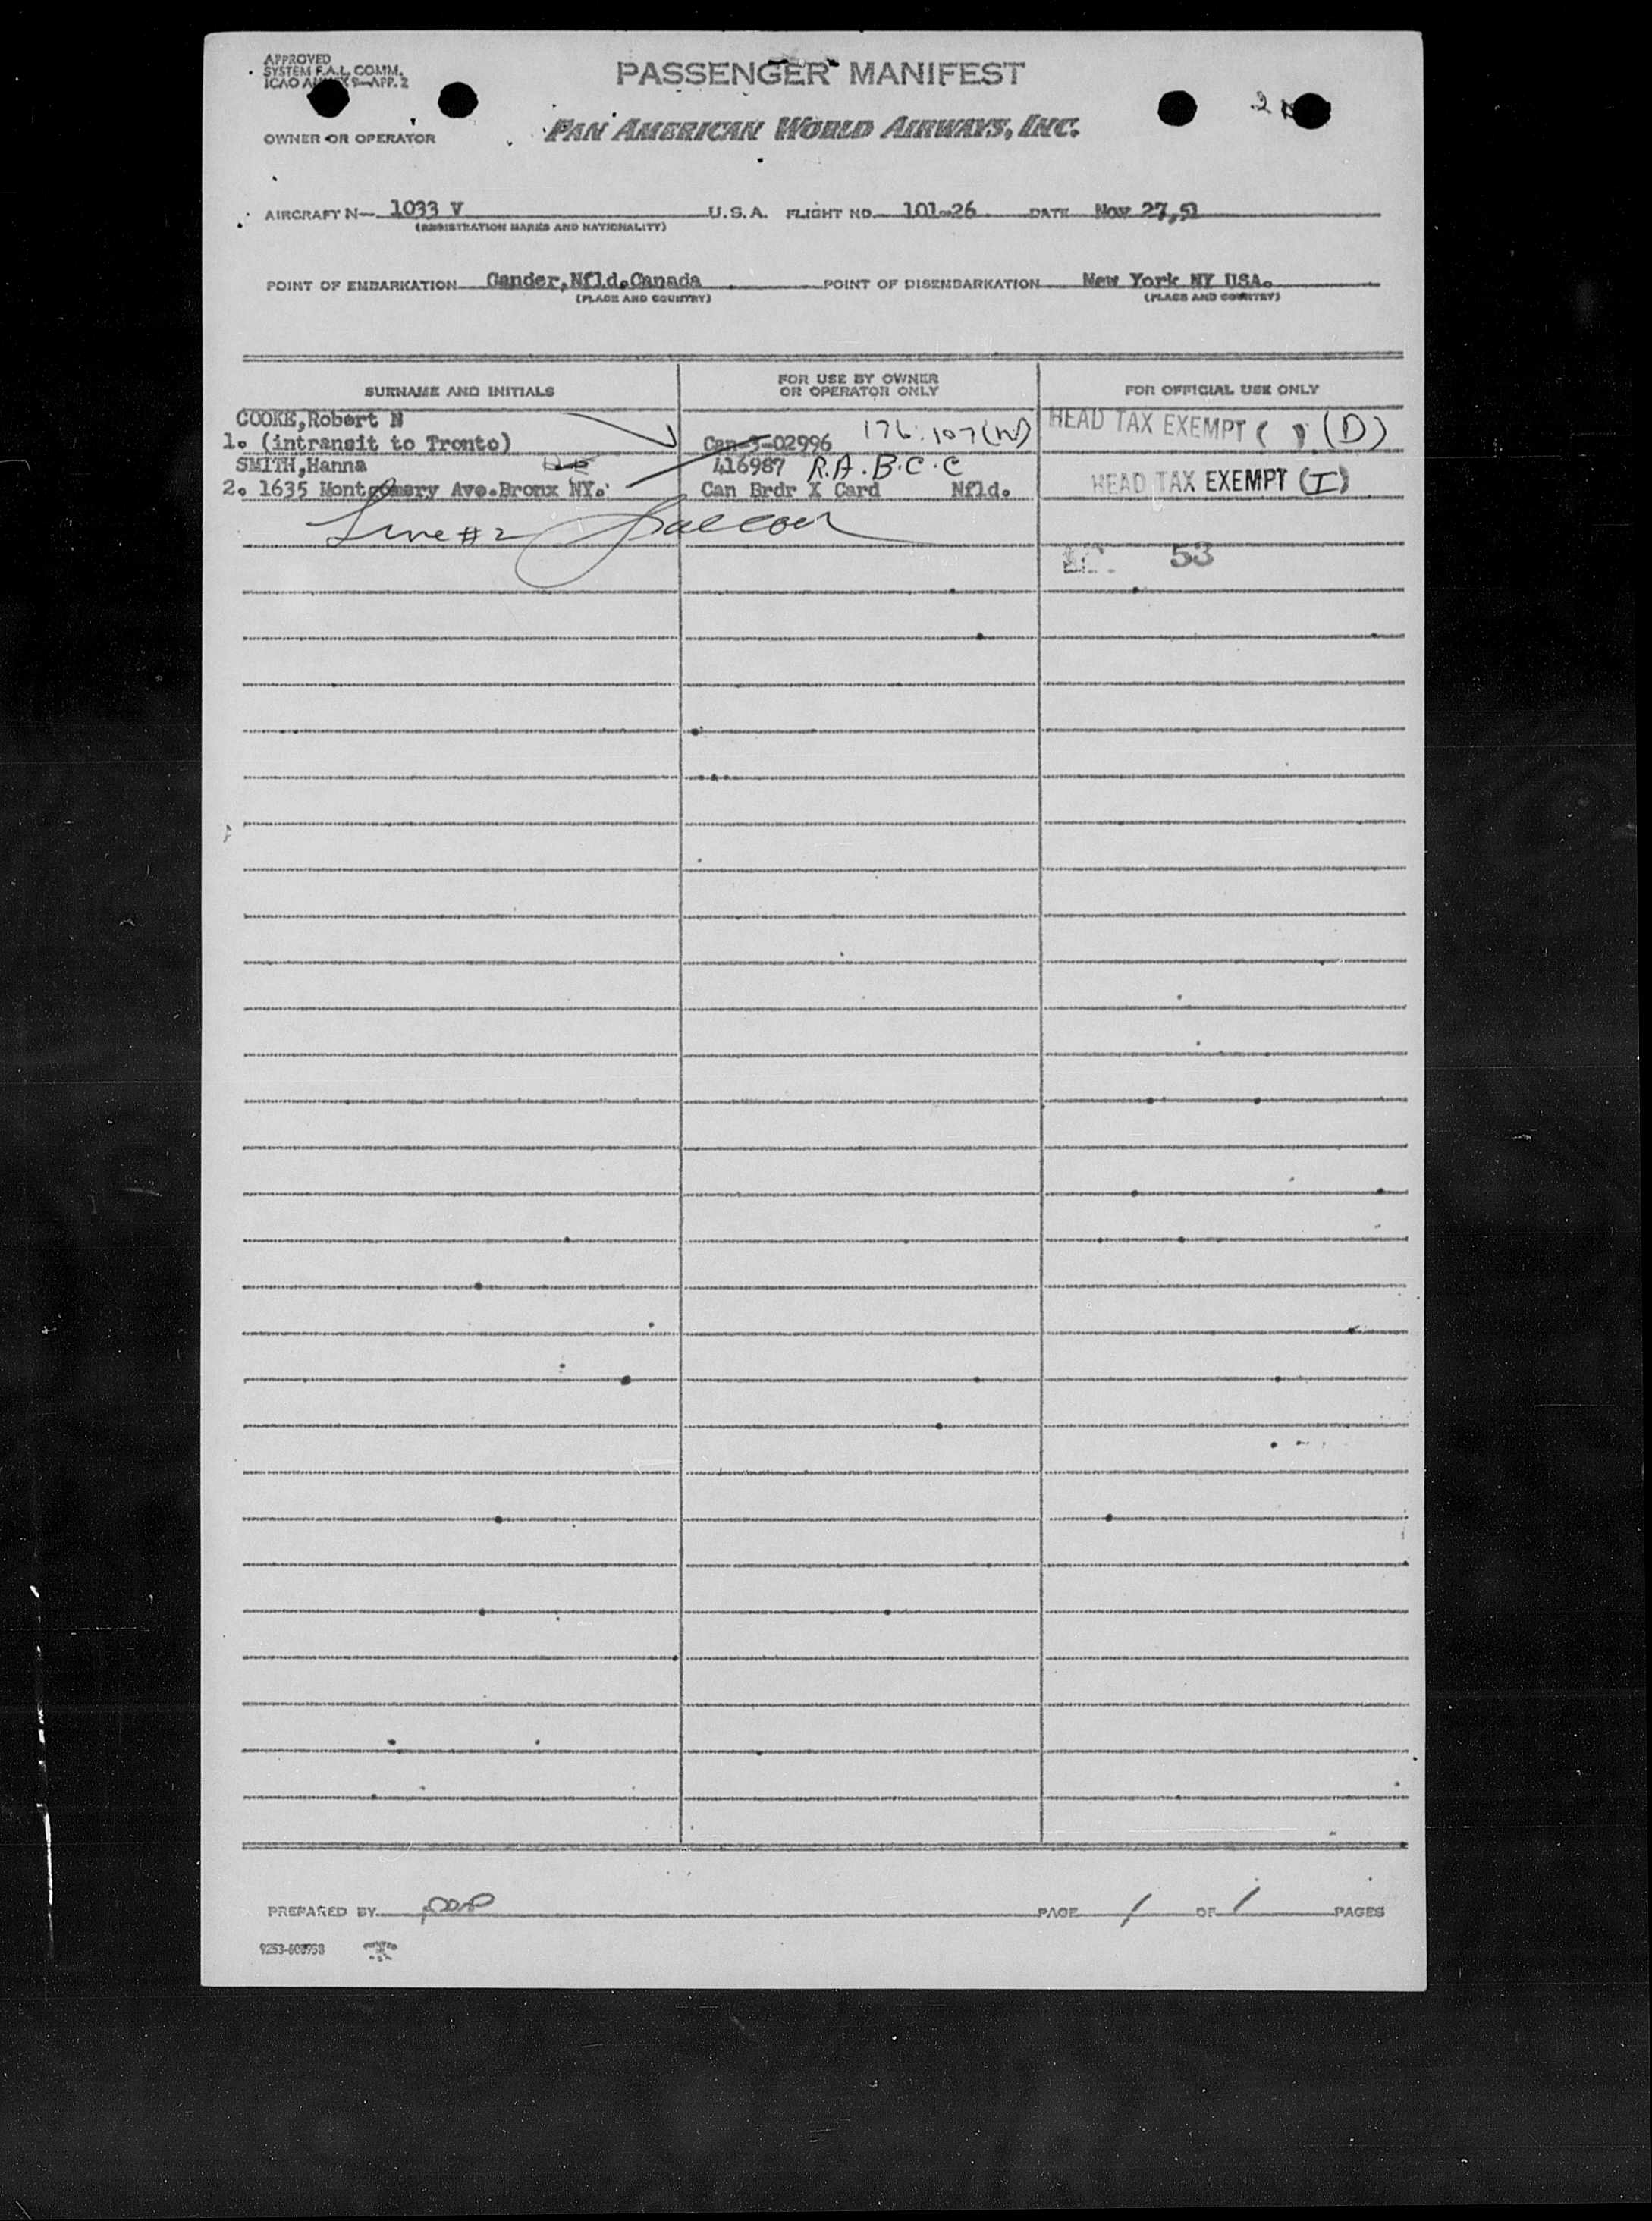 APPROVED
SYSTEM F.A.L. COMM.
ICAO ANNEX 9—APP. 2
PASSENGER MANIFEST
2
OWNER OR OPERATOR
PAN AMERICAN WORLD AIRWAYS, INC.
AIRCRAFT N— 1033 V U.S.A. FLIGHT NO. 101-26 DATE Nov 27,51
(REGISTRATION MARKS AND NATIONALITY)
POINT OF EMBARKATION Gander,Nfld.Canada POINT OF DISEMBARKATION New York NY USA.
(PLACE AND COUNTRY) (PLACE AND COUNTRY)
SURNAME AND INITIALS FOR USE BY OWNER OR OPERATOR ONLY FOR OFFICIAL USE ONLY
COOKE,Robert N
1. (intransit to Tronto) Can-5-02996 176.107(W) HEAD TAX EXEMPT ( ) (D)
SMITH,Hanna 416987 R.A.B.C.C
2. 1635 Montgomery Ave.Bronx NY. Can Brdr X Card Nfld. HEAD TAX EXEMPT (I)
Line #2
53
PREPARED BY PAGE 1 OF 1 PAGES
9253-608958 PRINTED IN U.S.A.